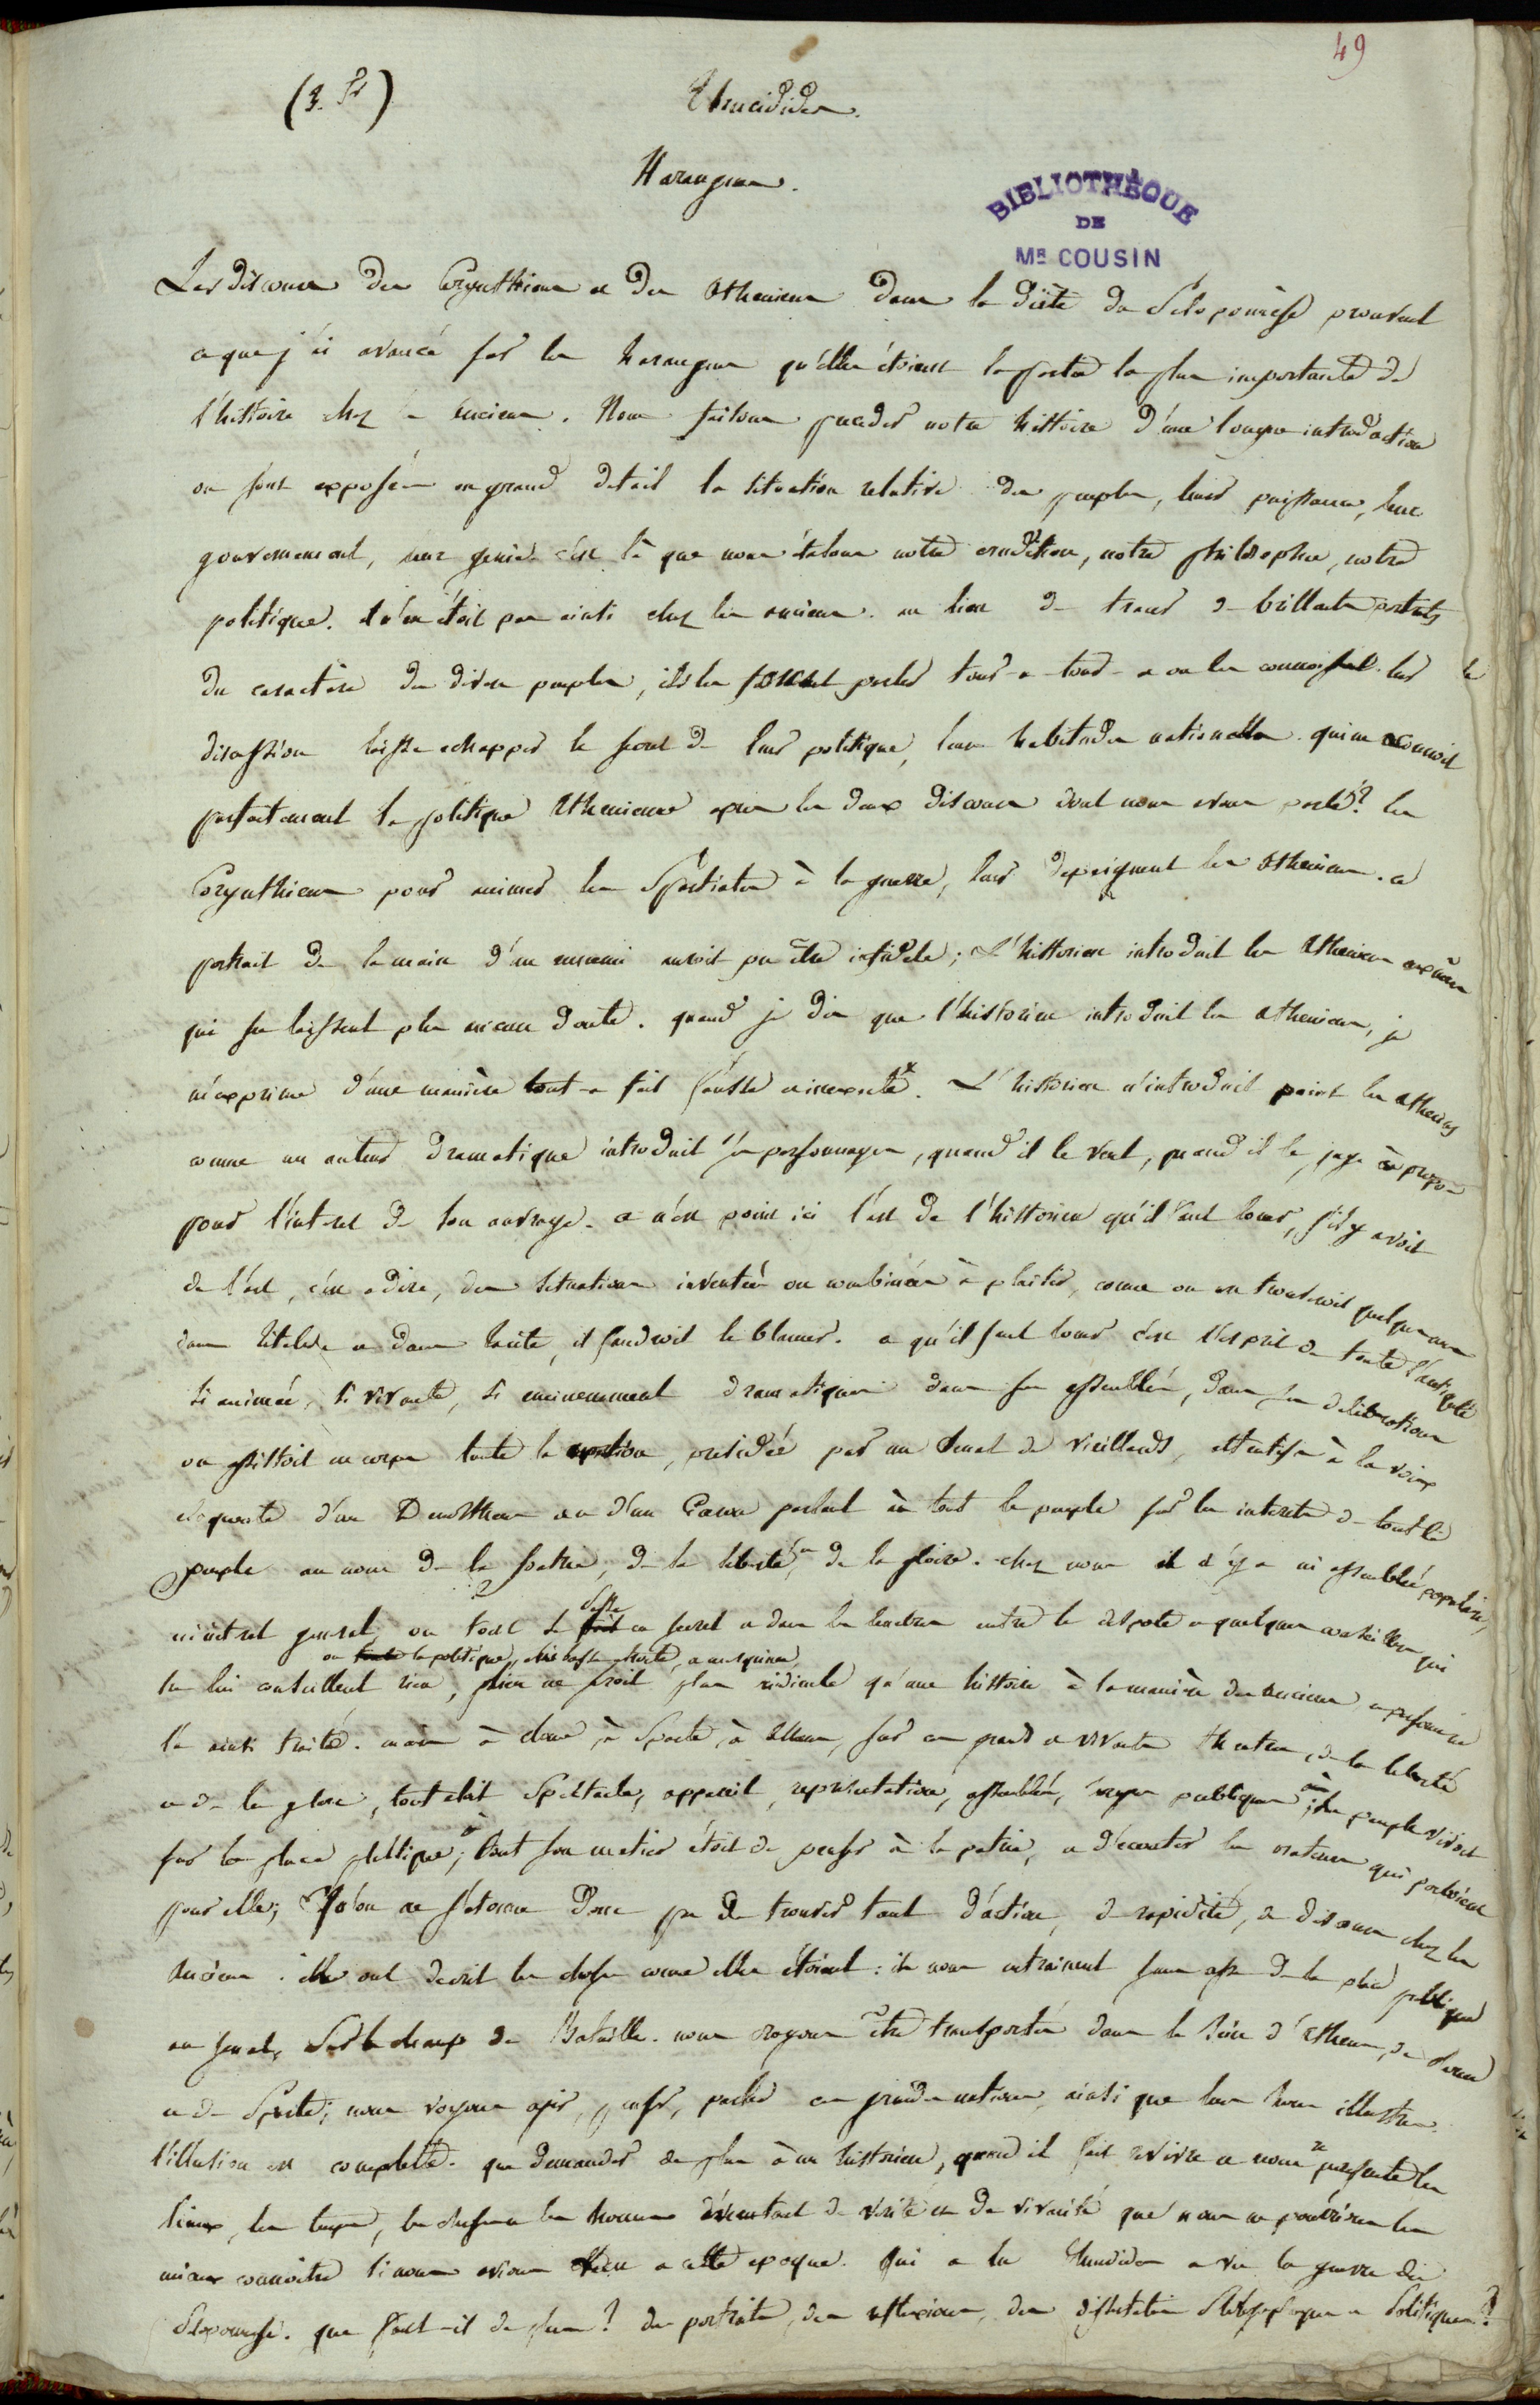 49
(3. Sr)
Thucidides.
Harangues.
BIBLIOTHÈQUE
DE
MR COUSIN
Les discours des Corynthiens et des Atheniens dans la diète du Péloponnèse prouvent
ce que j'ai avancé sur les harangues qu'elles étoient la partie la plus importante de
l'histoire chez les anciens. Nous faisons preceder notre histoire d'une longue introduction
ou sont exposées en grand detail la situation relative des peuples, leurs puissance, leur
gouvernement, leur genie. c'est là que nous étalons notre erudition, notre philosophie, notre
politique. il n'en étoit pas ainsi chez les anciens. au lieu de tracer de brillants portraits
du caractère des divers peuples, ils les font parler tour-a-tour et on les connoit. leur
discussion laisse echapper le secret de leur politique, leurs habitudes nationales. qui ne connoit
parfaitement la politique Athenienne apres les deux discours dont nous avons parlé? les
Corynthiens pour animer les Spartiates à la guerre, leur depeignent les Atheniens. ce
portrait de la main d'un ennemi auroit pu être infidele; L'historien introduit les Atheniens eux mêmes
qui ne laissent plus aucun doute. quand je dis que l'historien introduit les atheniens, je
m'exprime d'une manière tout-a fait fausse et inexacte. L'historien n'introduit point les atheniens
comme un auteur dramatique introduit ses personnages, quand il le veut, quand il le juge à propos
pour l'interet de son ouvrage. ce n'est point ici l'art de l'historien qu'il faut louer, s'il y avoit
de l'art, c'est a dire, des situations inventées ou combinées à plaisir, comme on en trouveroit quelques unes
dans Titelive et dans Tacite, il faudroit le blamer. ce qu'il faut louer c'est l'esprit de toute l'antiquité
si animée, si vivante, si eminemment dramatique dans ses assemblées, dans ses deliberations
ou assistoit en corps toute la nation, presidée par un Senat de vieillards, attentifs à la voix
eloquente d'un Demosthene ou d'un parlant à tout le peuple sur les interets de tout le
peuple au nom de la patrie, de la liberté, de la gloire. chez nous il n'y a ni assemblée populaire,
ni interet general, ou tout se passe en secret et dans les tenebres entre le despote et quelques conseillers qui
ne lui conseillent rien, ou la politique, rien ne seroit plus ridicule qu'une histoire à la manière des anciens
mais à Rome, à Sparte, à Athenes, sur ces grands et vivants theatres, de la liberté
et de la gloire, tout etoit Spectacle, appareil, representation, assemblée, publique; le peuple vivoit
sur la place publique; tout son metier étoit de penser à la patrie, et d'ecouter les orateurs qui parloient
pour elle; Qu'on ne s'etonne donc pas de trouver tant d'action, de rapidité, de discours chez les
Anciens. ils ont decrit les choses comme elles étoient: ils nous entrainent sans cesse de la place publique
au Senat, Sur le champ de Bataille. nous croyons être transportés dans le sein d'Athenes, de Rome
et de Sparte; nous voyons agir, penser, parler ces grandes nations, ainsi que leurs heros illustres.
l'illusion est complette. que demander de plus à un historien, quand il fait revivre et nous presente les
lieux, les temps, les choses et les hommes avec tant de verité et de vivacité que nous ne pourrions les
mieux connoitre si nous avions vecu a cette epoque. Qui a lu Thucidides a vu la guerre du
Peloponese. que faut-il de plus? des portraits, des reflexions, des dissertations Philosophiques et Politiques?